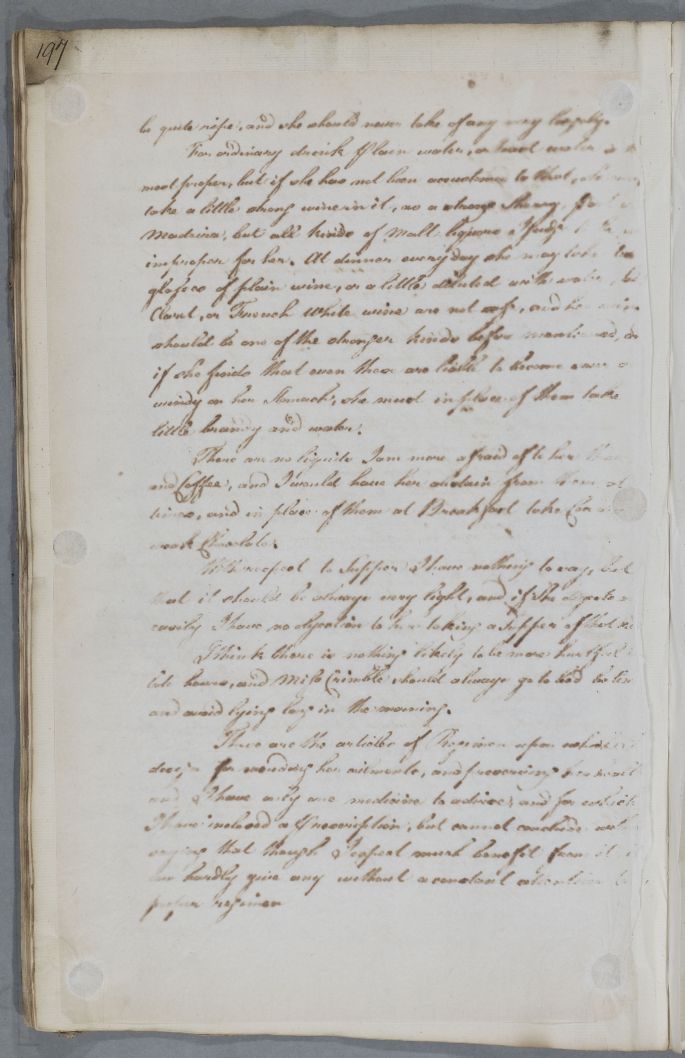 197
be quite ripe, and she should never take of any very largely.
For ordinary drink plain water, or toast water is
most proper, but if she has not been accustomed to that, she may
take a little strong wine in it, as a strong Sherry,
Madeira, but all kinds of Malt liquors I judge to be
improper for her. At dinner every day she may take two
glasses of plain wine, or a little diluted with water, but
Claret, or French White wine are not safe, and her wine
should be one of the stronger kinds before mentioned, or
if she finds that even these are liable to become sour or
windy on her Stomach, she must in place of them take
little brandy and water.
There are no liquids I am more afraid of to her than
and Coffee, and I would have her abstain from them at
times, and in place of them at Breakfast take
weak Chocolate.
With respect to Supper I have nothing to say, but
that it should be always very light, and if she digests
easily I have no objection to her taking a Supper of that
I think there is nothing likely to be more hurtful
late hours, and Miss Crimble should always go to bed
and avoid lying long in the morning.
These are the articles of Regimen upon which I
for mending her ailments, and preserving her health
and I have only one medicine to advise, and for which
I have inclosed a Prescription, but cannot conclude without
saying that though I expect much benefit from it, it
can hardly give any without a constant attention to
proper regimen